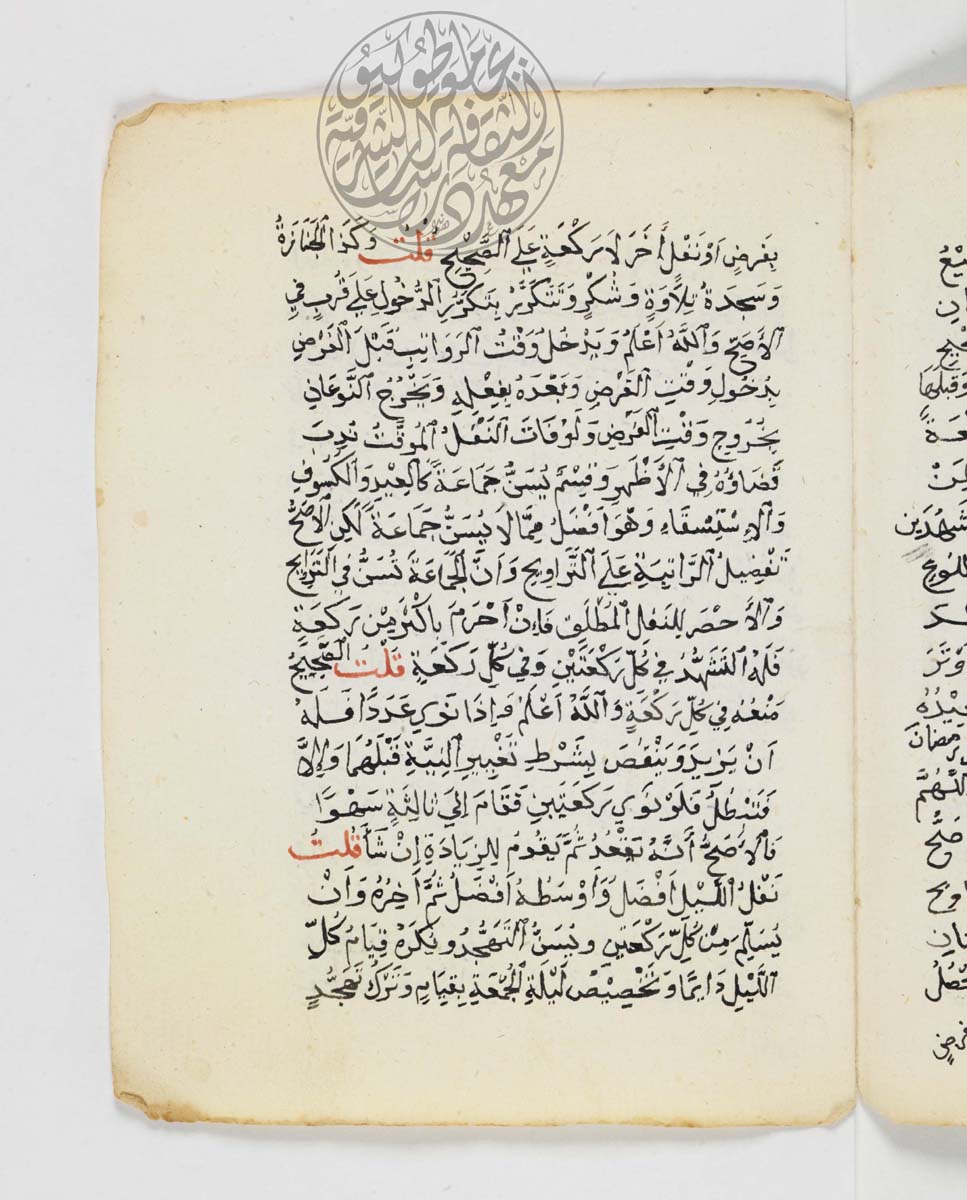 بِفَرضٍ اَوْ نَفْلٍ أٰخَرَ لَا رَكْعَةٍ عَلَى الصَّحِيْحِ قُلْتُ وَكَذَا الْجَنَازَةُ
وَسَجدَةُ تِلَاوَةٍ وَشُكْرٍ وَتَتَكَرَّرُ بِتَكَرُّرِ الدُّخُولِ عَلَى قُربٍ فِي
الْأَصَحِّ وَاللّٰهُ اَعْلَمُ وَيَدْخُلُ وَقْتُ الرَوَاتِبِ قَبْلَ الْفَرْضِ
بِدُخُولِ وَقْتِ الفَرْضِ وَبَعْدَهُ بِفِعْلِهِ وَيَخْرُجُ النَّوعَانِ
بِخُرُوجِ وَقْتِ الفَرْضِ وَلَوْ فَاتَ النَّفْلُ المُوَقَّتُ نُدِبَ
قَضَاؤُهُ فِي الْأَظْهَرِ وَقِسْمٌ يُسَنُّ جَمَاعَةً كَالعِيْدِ وَالْكُسُوفِ
وَالْاِسْتِسْقَاءِ وَهُوَ اَفْضَلُ مِمَّا لَا يُسَنُّ جَمَاعَةً لٰكِنِ الْأَصَحُّ
تَفْضِيلُ الرَّاتِبَةِ عَلَى التَّرَاوِيحِ وَاَنَّ الْجَمَاعَةَ تُسَنُّ فِي التَّرَاوِيحِ
وَلَا حَصْرَ لِلنَفْلِ الْمُطْلَقِ فَاِنْ اَحْرَمَ بِاَكْثَرَ مِنْ رَكعَةٍ
فَلَهُ التَّشَهُّدُ فِي كُلِّ رَكْعَتَيْنِ وَفِي كُلِّ رَكْعَةٍ قُلْتُ الصَّحِيْحُ
مَنْعُهُ فِي كُلِّ رَكْعَةٍ وَاللّٰهُ اَعْلَمُ فَاِذَا نَوَى عَدَدًا فَلَهُ
اَنْ يَزِيدَ وَيَنْقُصَ بِشَرْطِ تَغْيِيرِ النِيَّةِ قَبْلَهُمَا وَاِلَّا
فَتَبْطُلُ فَلَوْ نَوَى رَكعَتَيْنِ فَقَامَ اِلَى ثَالِثَةٍ سَهْوًا
فَالْأَصَحُّ أَنَّهُ يَقْعُدُ ثُمَّ يَقُومُ لِلزِيَادَةِ اِنْ شَأَ قُلْتُ
نَفْلُ اللَّيْلِ اَفْضَلُ وَاَوْسَطُهُ اَفْضَلُ ثُمَّ اٰخِرُهُ وَاَنْ
يُسَلِّمَ مِنْ كُلِّ رَكْعَتَيْنِ وَيُسَنُّ التَّهَجُّدُ وَيُكْرَهُ قِيَامُ كُلِّ
اللَّيْلِ دَايِمًا وَتَخْصِيْصُ لَيْلَةِ الْجُمْعَةِ بِقِيَامٍ وَتَرْكُ تَهَجُّدٍ